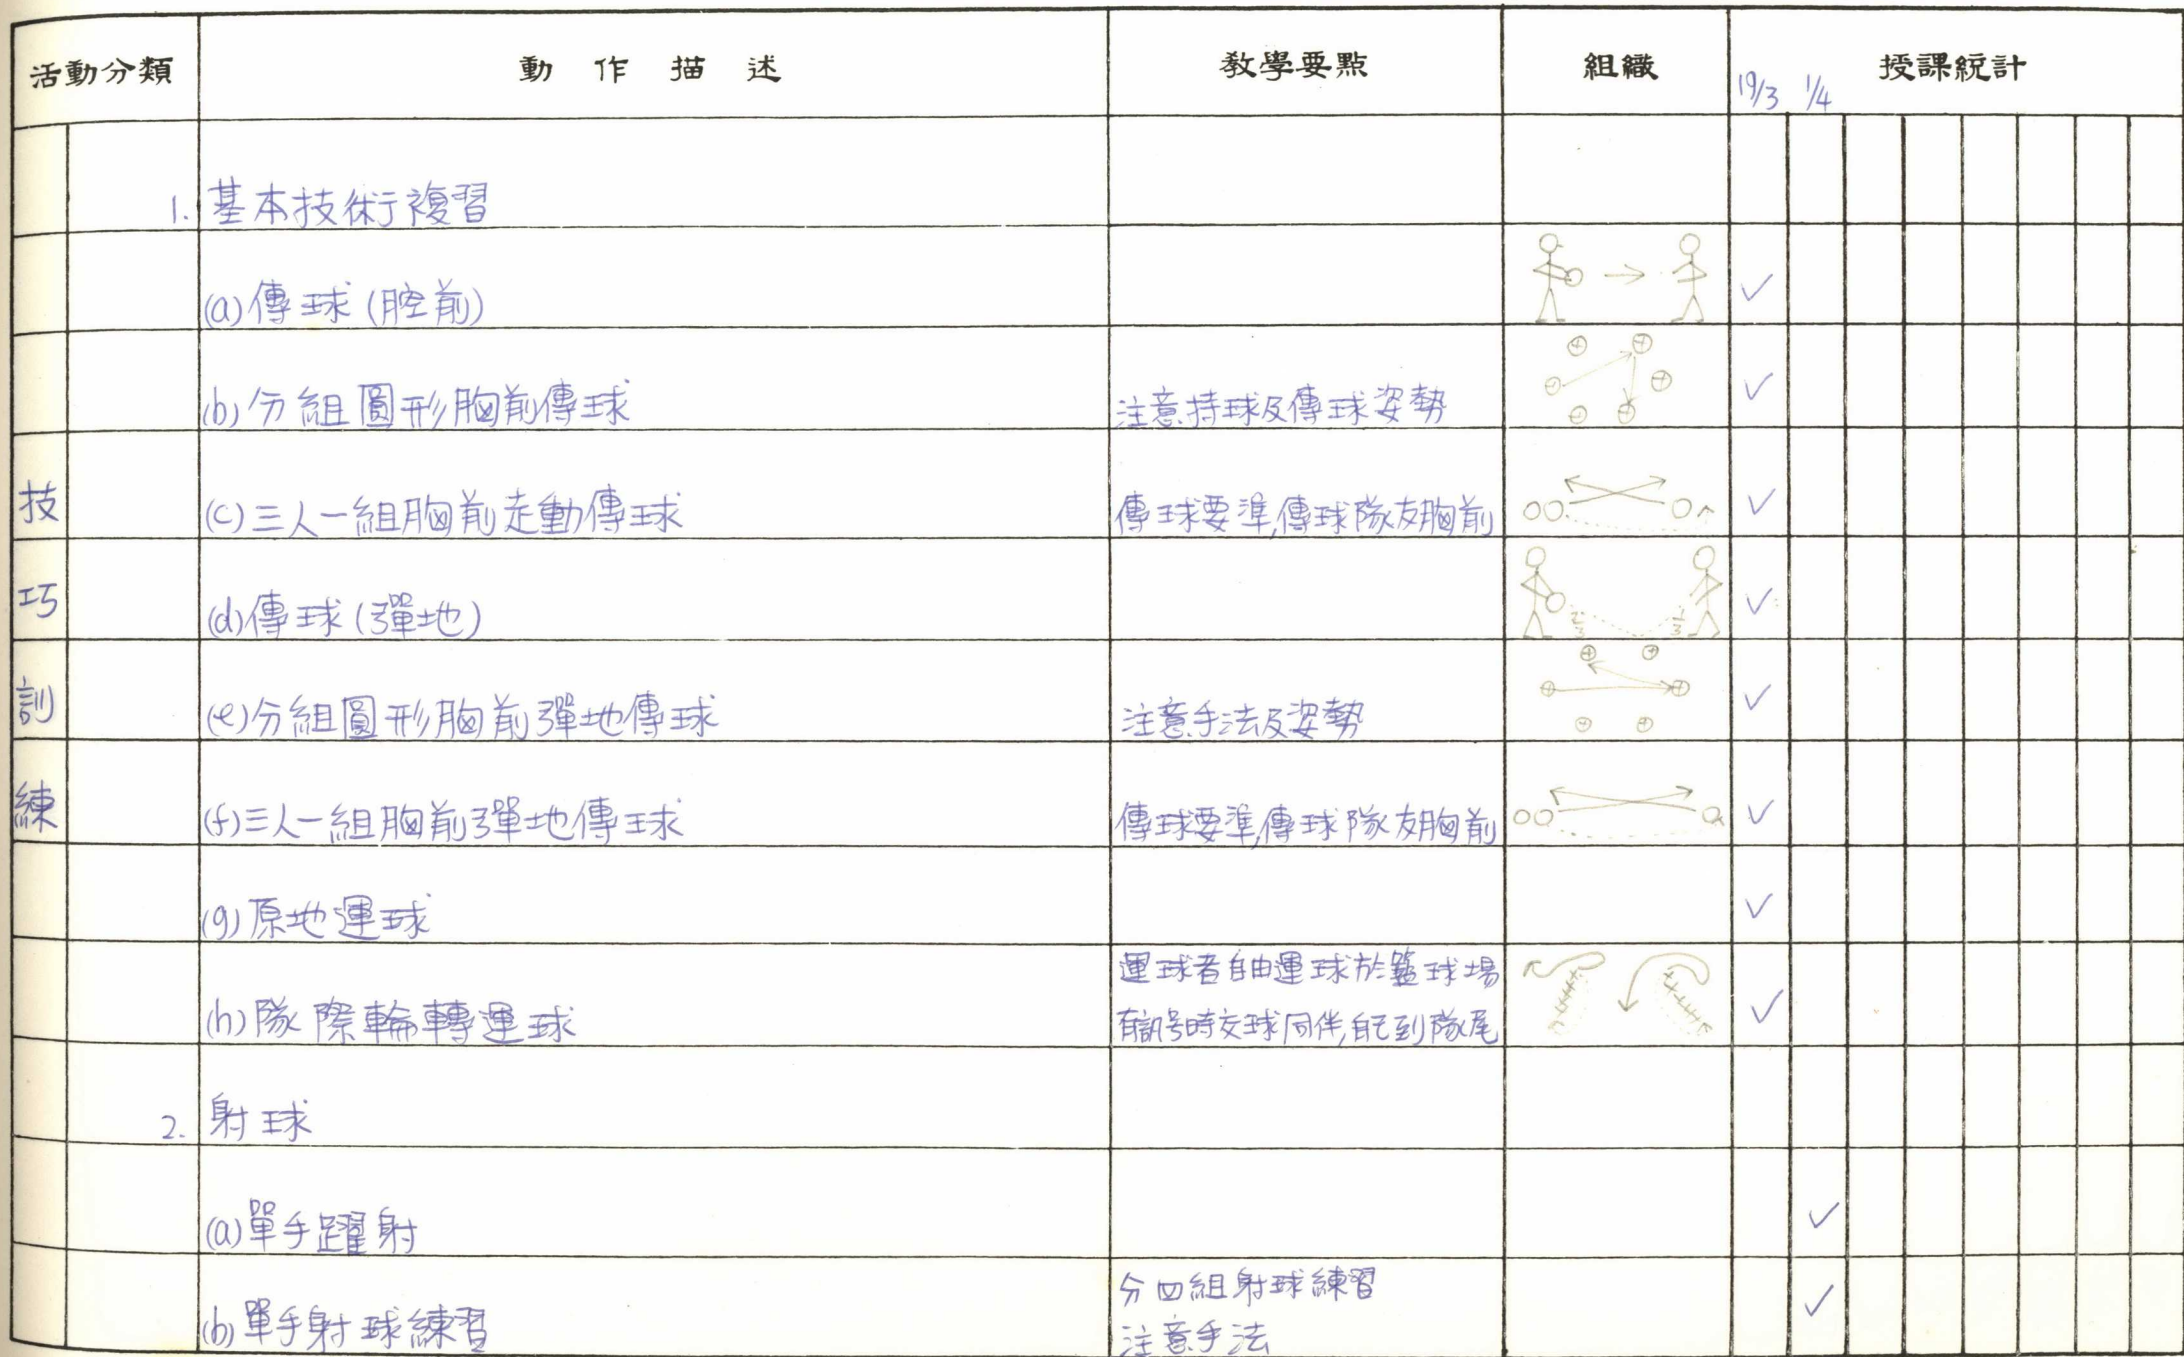 活動分類 動作描述 教學要點 組織 授課統計
19/3 1/4
1. 基本技術複習
(a) 傳球 (胸前)
(b) 分組圓形胸前傳球 注意持球及傳球姿勢
技 (c) 三人一組胸前走動傳球 傳球要準,傳球隊友胸前
巧 (d) 傳球 (彈地) 2/3 1/3
訓 (e) 分組圓形胸前彈地傳球 注意手法及姿勢
練 (f) 三人一組胸前彈地傳球 傳球要準,傳球隊友胸前
(g) 原地運球
運球者自由運球於籃球場
(h) 隊際輪轉運球 有訊号時交球同伴,自己到隊尾
2. 射球
(a) 單手躍射
分四組射球練習
(b) 單手射球練習 注意手法